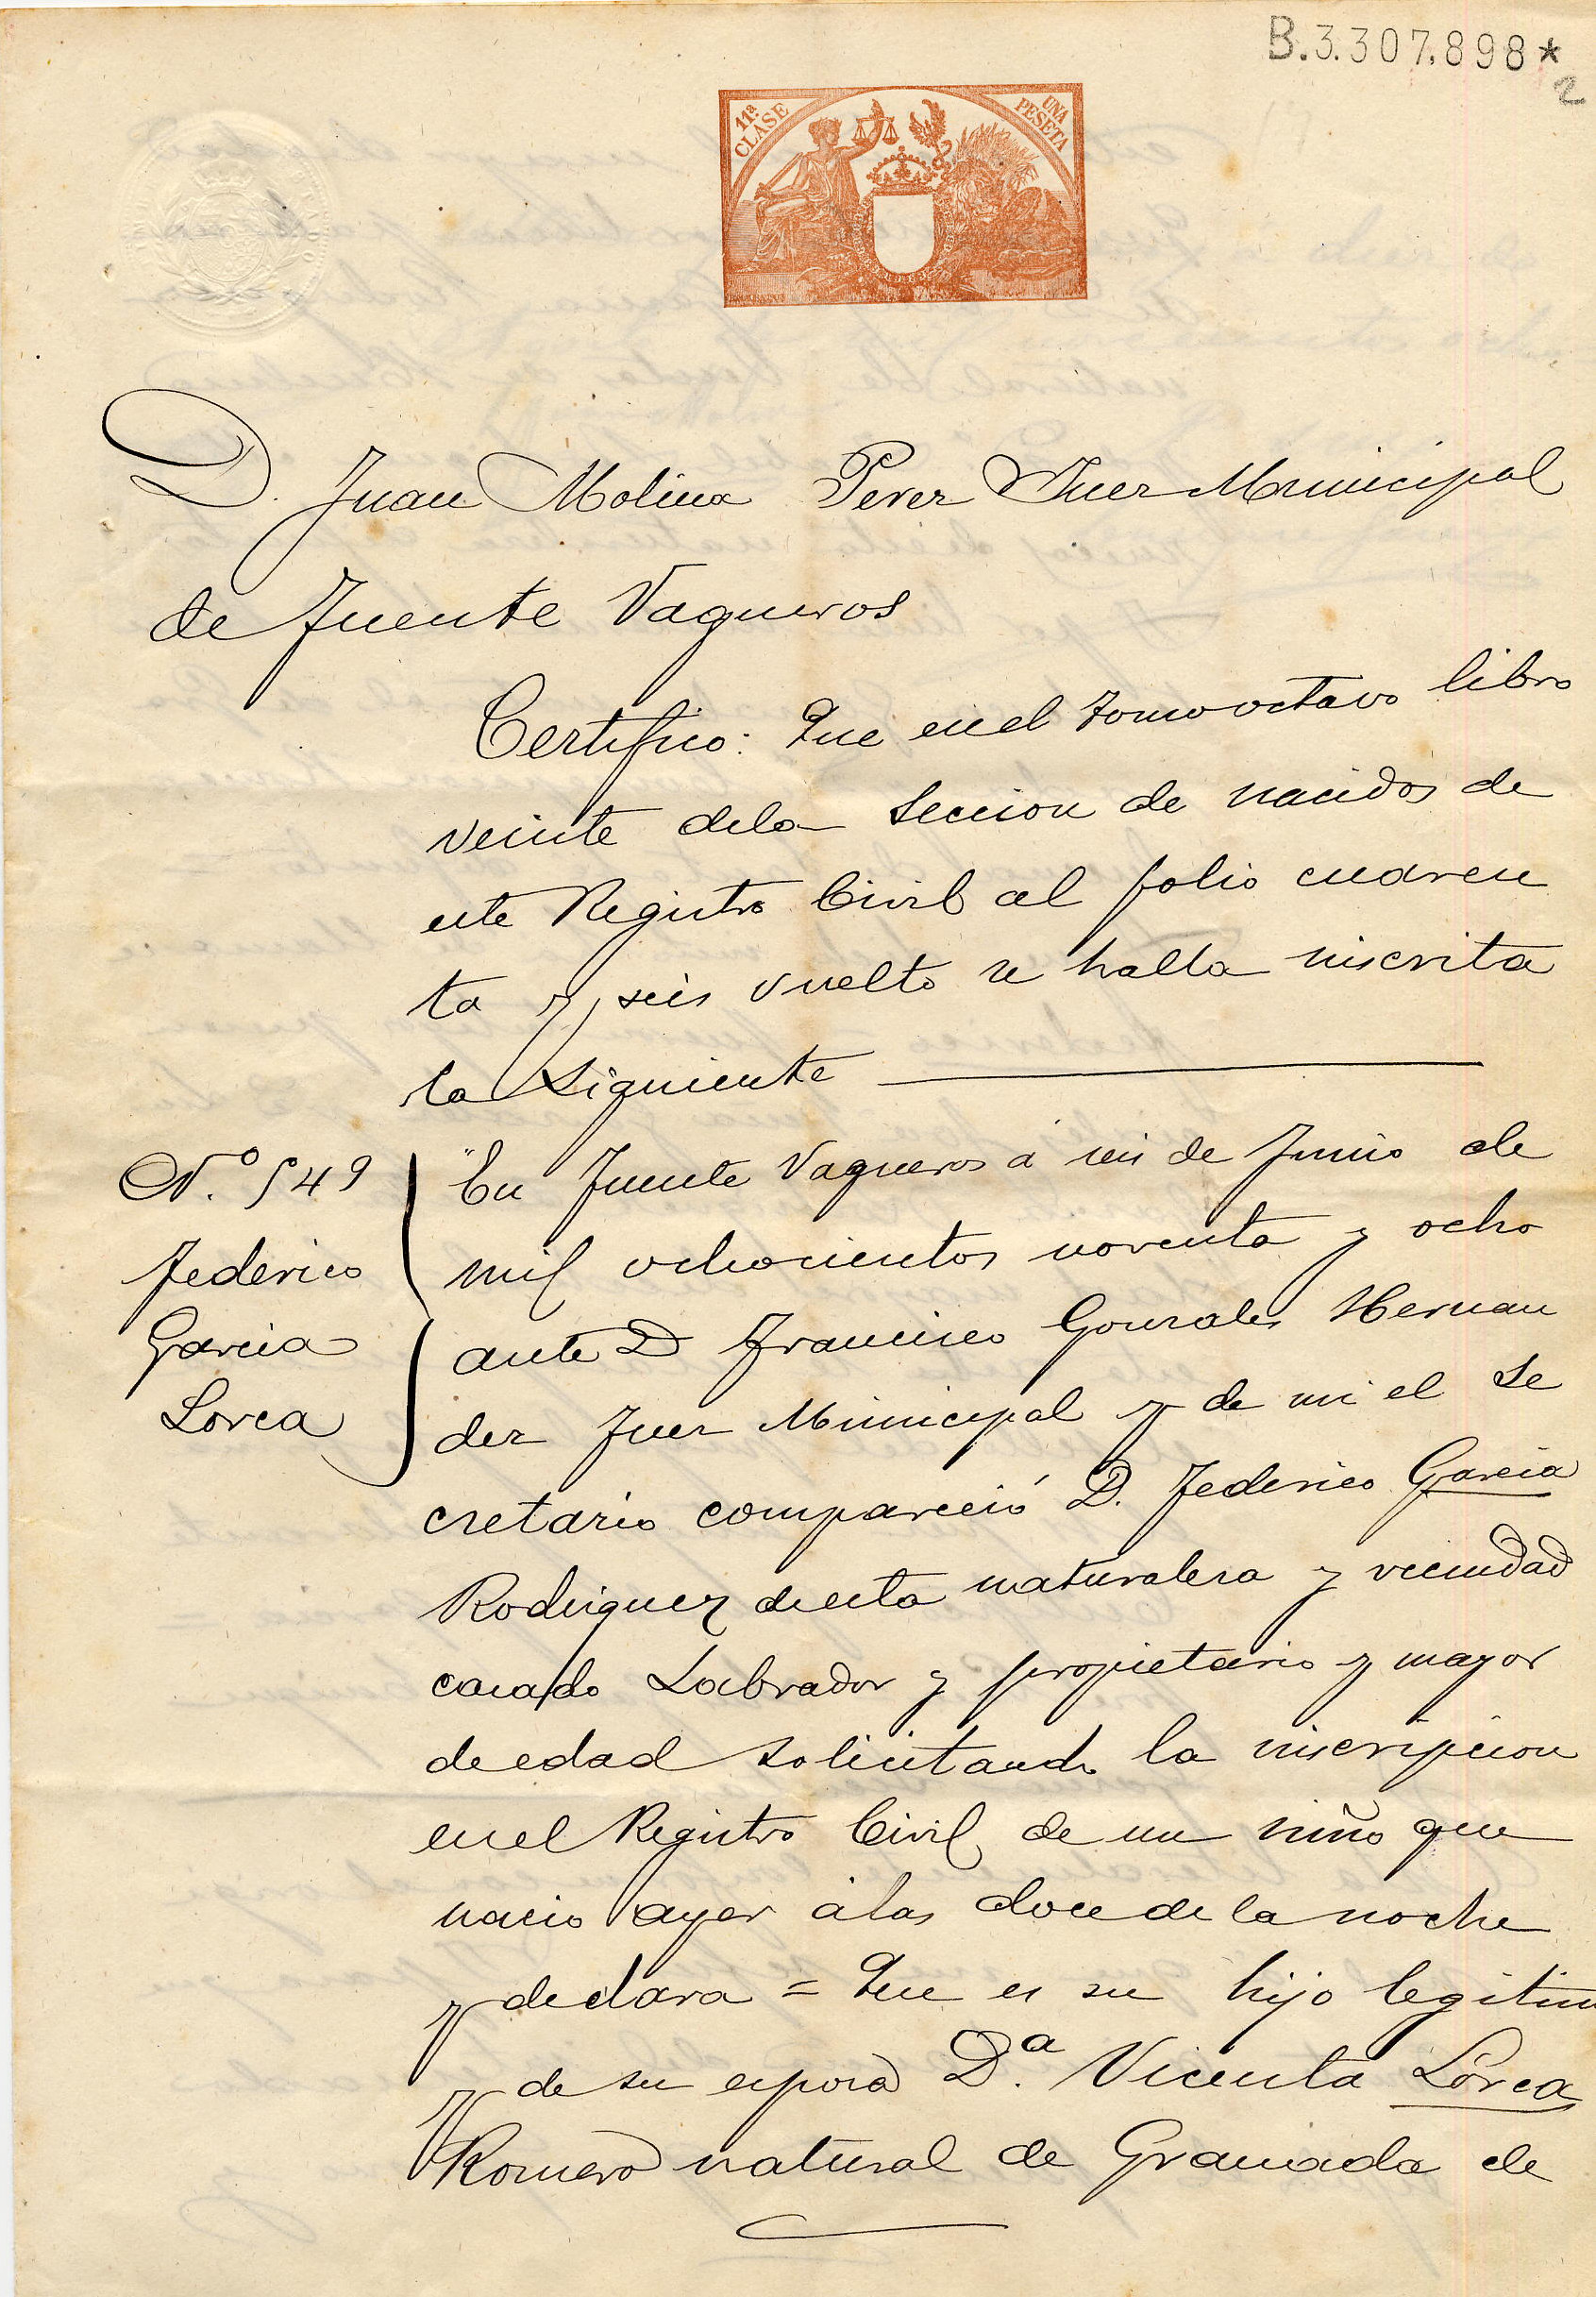 B.3.307.898*
2
11ª CLASE
UNA PESETA
D. Juan Molina Perez Juez Municipal
de Fuente Vaqueros
Certifico: Que en el tomo octavo libro
veinte dela Seccion de nacidos de
este Registro Civil al folio cuaren
ta y seis vuelto se halla inscrita
la siguiente
N.º 549
Federico
Garcia
Lorca
"En Fuente Vaqueros á seis de Junio de
mil ochocientos noventa y ocho
ante D Francisco Gonzales Hernan
dez Juez Municipal y de mi el Se
cretario compareció D. Federico Garcia
Rodriguez de esta naturaleza y vecindad
casado Labrador y propietario y mayor
de edad solicitando la inscripcion
en el Registro Civil de un niño que
nacio ayer á las doce de la noche
y declara = Que es su hijo legitimo
y de su esposa D.ª Vicenta Lorca
Romero natural de Granada de